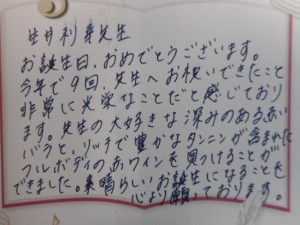 生井利幸先生
お誕生日、おめでとうございます。
今年で9回、先生へお祝いできたこと
非常に光栄なことだと感じており
ます。先生の大好きな深みのある赤い
バラと、リッチで豊かなタンニンが含まれた
フルボディの赤ワインを見つけることが
できました。素晴らしいお誕生日になることを
心より願っております。